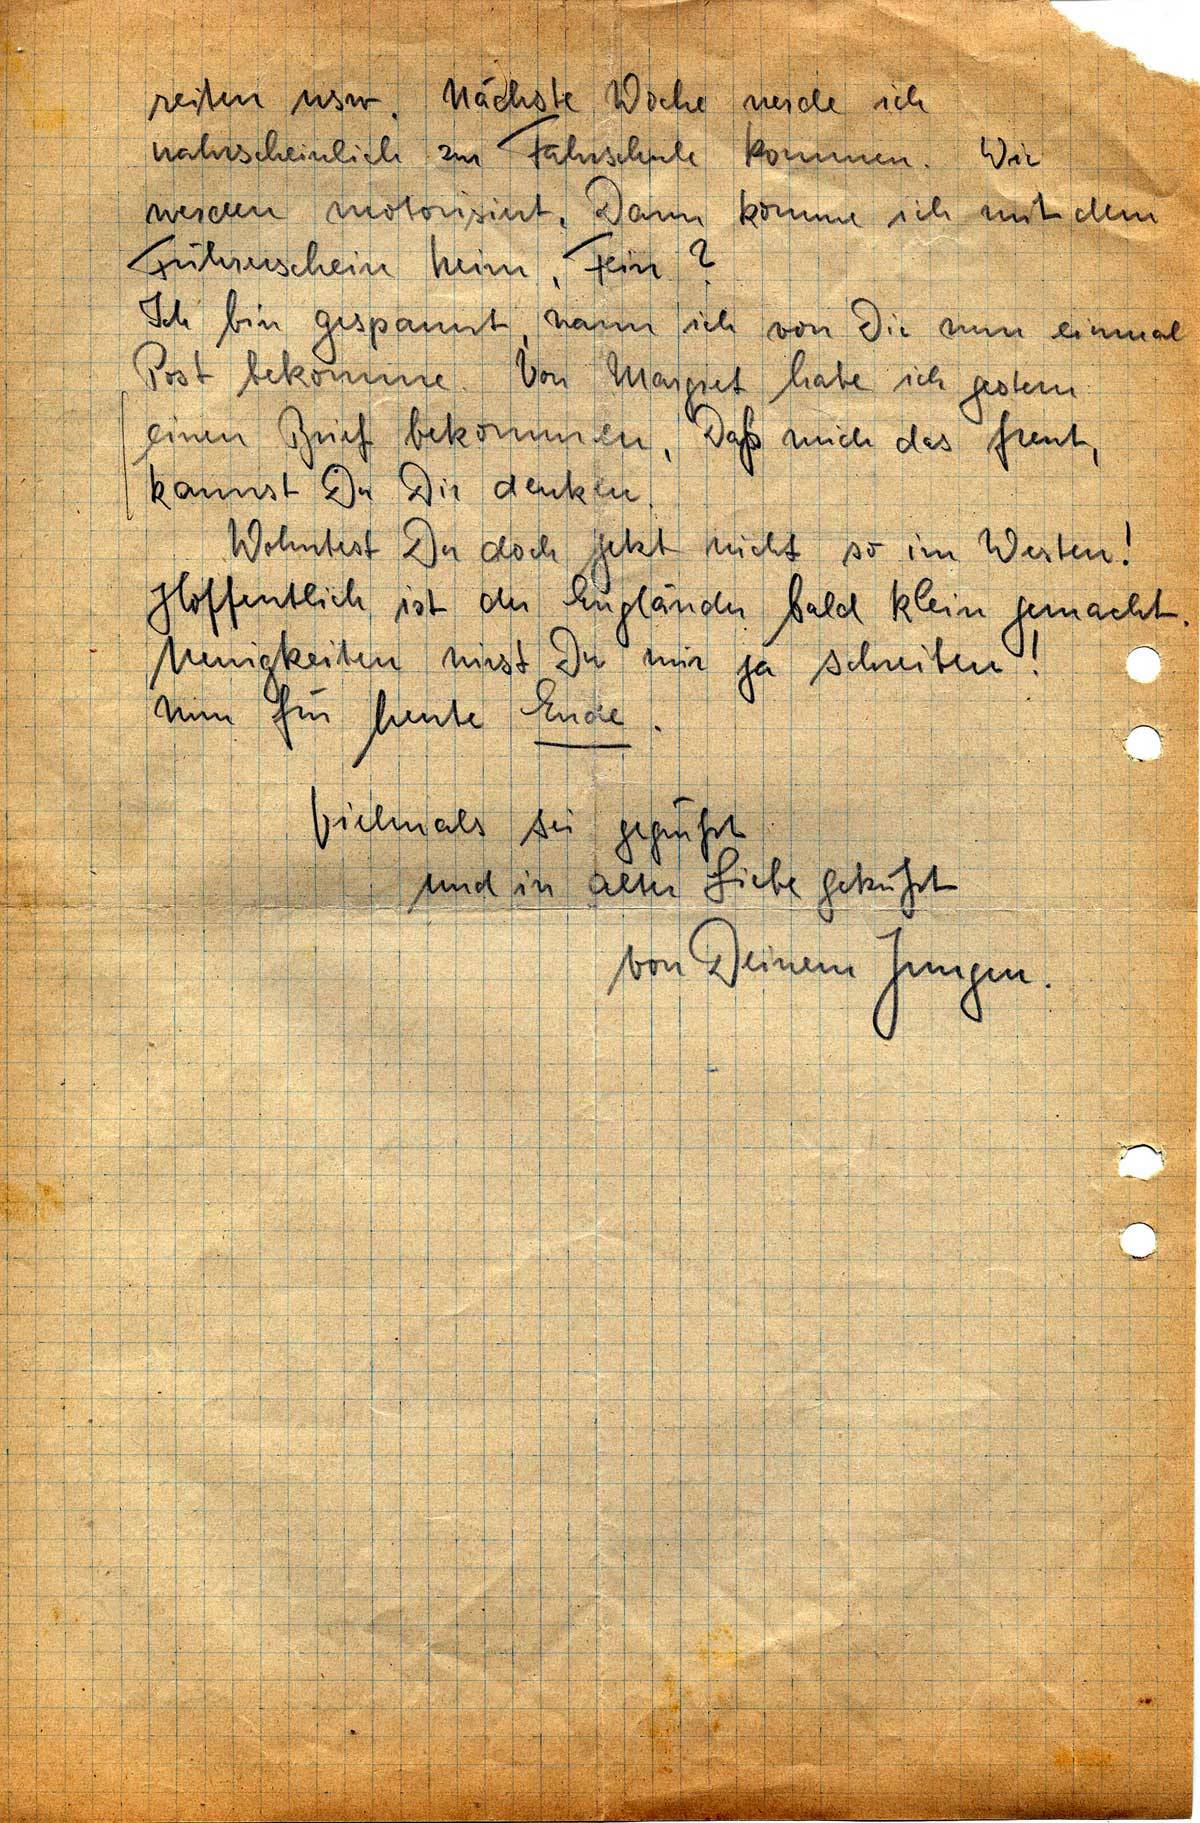 reiten usw. Nächste Woche werde ich
wahrscheinlich zur Fahrschule kommen. Wir
werden motorisiert. Dann komme ich mit dem
Führerschein heim, Fein?
Ich bin gespannt, wann ich von Dir nun einmal
Post bekomme. Von Margret habe ich gestern
einen Brief bekommen, Daß mich das freut,
kannst Du Dir denken.
Wohntest Du doch jetzt nicht so im Westen!
Hoffentlich ist der Engländer bald klein gemacht.
Neuigkeiten wirst Du mir ja schreiben!
Nun für heute Ende.
Vielmals sei gegrüßt
und in alter Liebe geküßt
von Deinem Jungen.